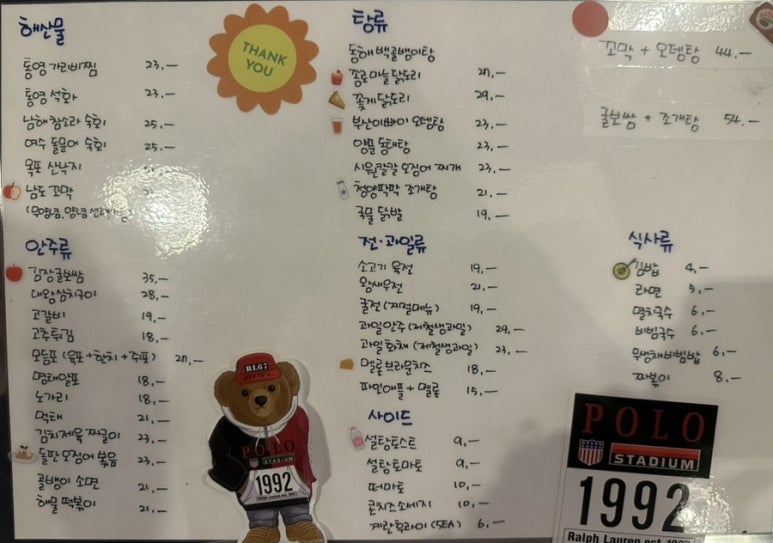 해산물
통영 가리비찜 23.-
통영 석화 23.-
남해 참소라 숙회 25.-
여수 돌문어 숙회 25.-
목포 산낙지
남도 꼬막
안주류
김장굴보쌈 35.-
대왕삼치구이 28.-
고갈비 19.-
고추튀김 18.-
모듬포 (육포+한치+쥐포) 27.-
명태알포 18.-
노가리 18.-
먹태 21.-
김치제육 짜글이 23.-
돌판 오징어 볶음 23.-
골뱅이 소면 21.-
해물 떡볶이 21.-
THANK
YOU
탕류
동해 백골뱅이탕
종로 마늘 닭도리 27.-
꽃게 닭도리 29.-
부산이빠이 오뎅탕 23.-
얼큰 동태탕 23.-
시원칼칼 오징어 찌개 23.-
청양팍팍 조개탕 21.-
국물 닭발 19.-
전·과일류
소고기 육전 19.-
왕새우전 21.-
굴전 (계절메뉴) 19.-
과일안주 (제철생과일) 29.-
과일 화채 (제철생과일) 23.-
멜론브라운치즈 18.-
파인애플 + 멜론 15.-
사이드
설탕토스트 9.-
설탕토마토 9.-
떠마로 10.-
콘치즈소세지 10.-
계란후라이 (5EA) 6.-
꼬막 + 오뎅탕 44.-
굴보쌈 + 조개탕 54.-
식사류
김밥 4.-
라면 5.-
멸치국수 6.-
비빔국수 6.-
무생채비빔밥 6.-
짜볶이 8.-
RL67
POLO
STADIUM
1992
Ralph Lauren
POLO
STADIUM
1992
Ralph Lauren est.